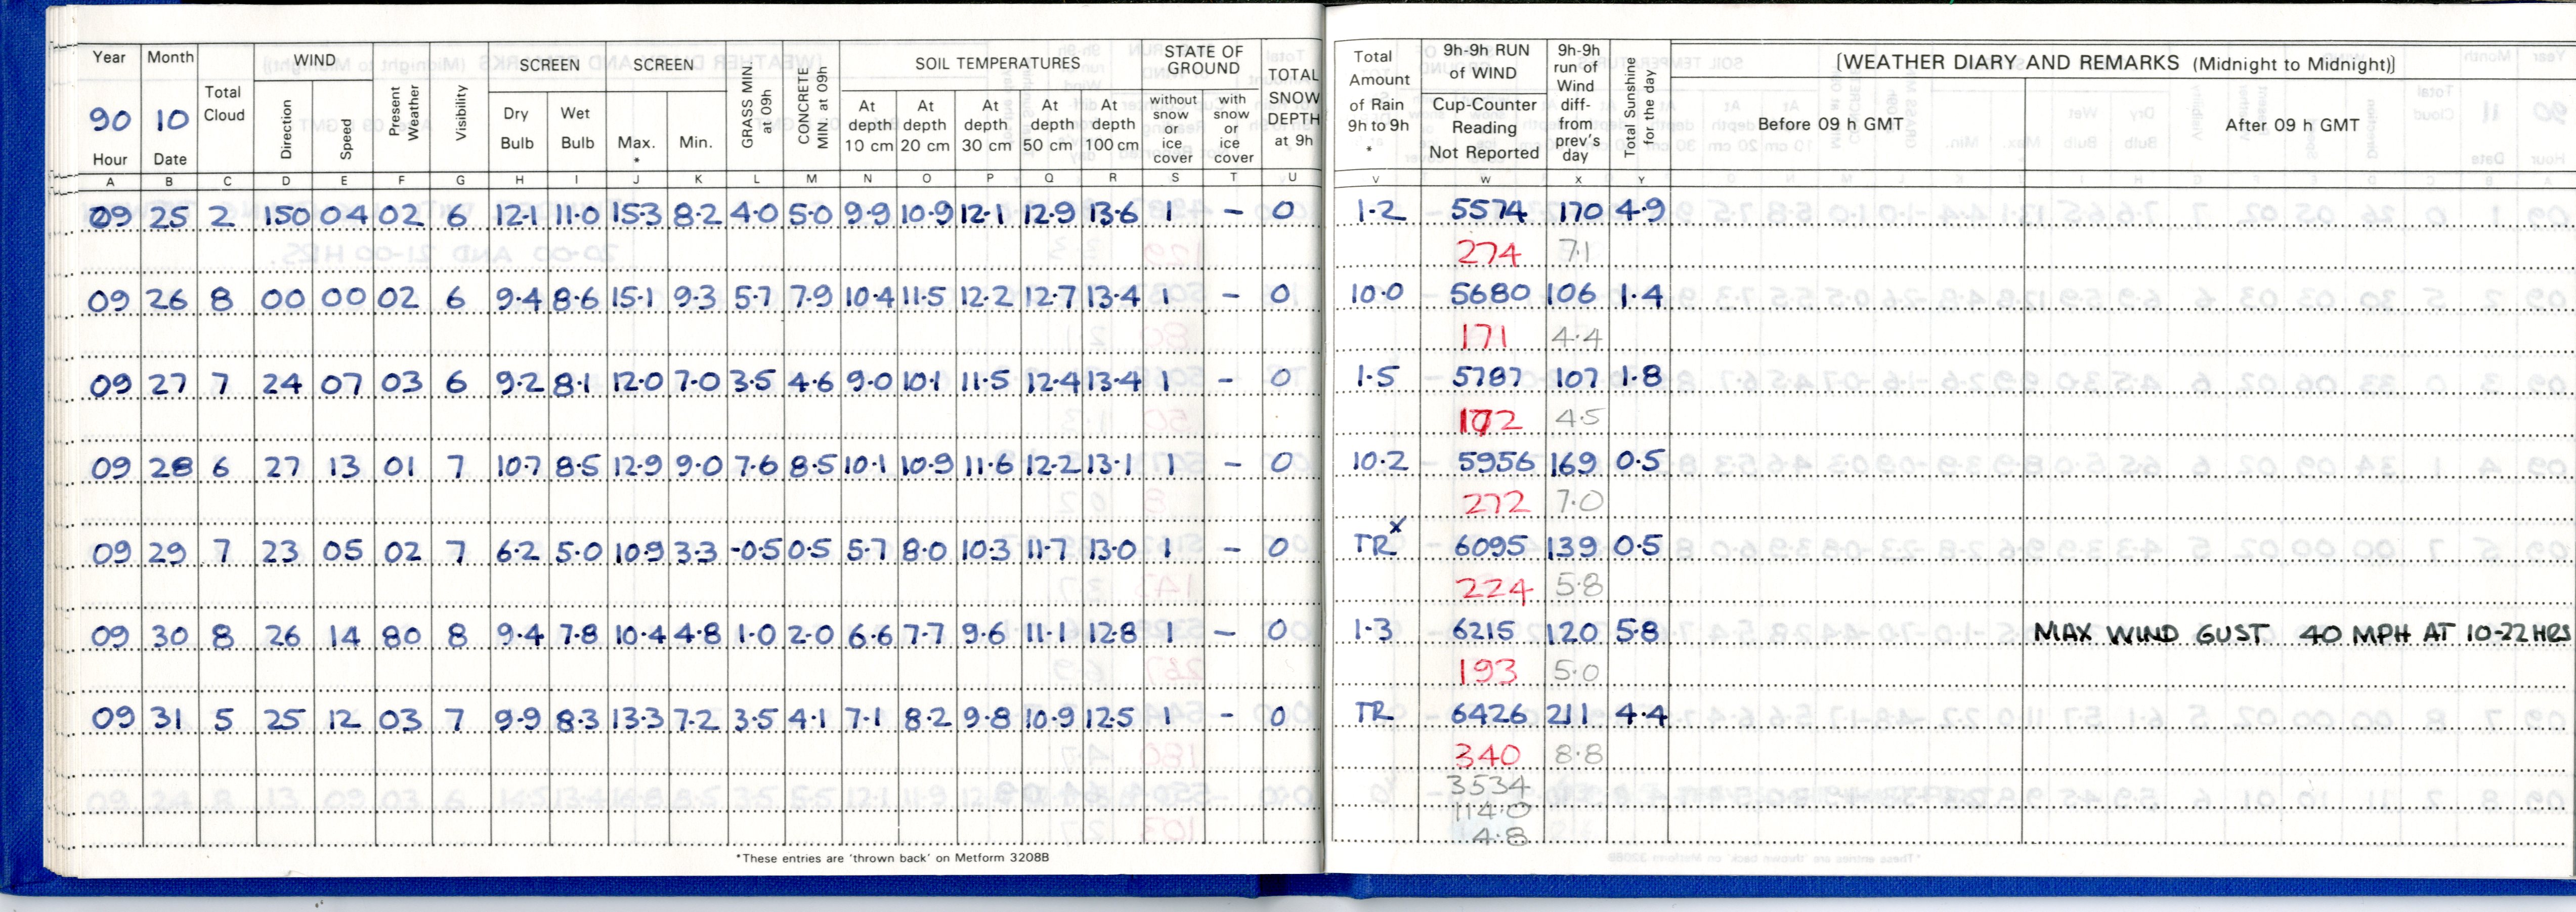 Year Month Total Cloud WIND Present Weather Visibility SCREEN SCREEN GRASS MIN. at 09h CONCRETE MIN at 09h SOIL TEMPERATURES STATE OF GROUND TOTAL SNOW DEPTH at 9h Total Amount of Rain 9h to 9h * 9h-9h RUN of WIND 9h-9h run of Wind diff- from prev's day Total Sunshine for the day [WEATHER DIARY AND REMARKS (Midnight to Midnight)]
90 10 Direction Speed Dry Bulb Wet Bulb Max. * Min. At depth 10 cm At depth 20 cm At depth 30 cm At depth 50 cm At depth 100 cm without snow or ice cover with snow or ice cover Cup-Counter Reading Not Reported Before 09 h GMT After 09 h GMT
Hour Date
A B C D E F G H I J K L M N O P Q R S T U V W X Y
09 25 2 150 04 02 6 12.1 11.0 15.3 8.2 4.0 5.0 9.9 10.9 12.1 12.9 13.6 1 - 0 1.2 5574 170 4.9
274 7.1
09 26 8 00 00 02 6 9.4 8.6 15.1 9.3 5.7 7.9 10.4 11.5 12.2 12.7 13.4 1 - 0 10.0 5680 106 1.4
171 4.4
09 27 7 24 07 03 6 9.2 8.1 12.0 7.0 3.5 4.6 9.0 10.1 11.5 12.4 13.4 1 - 0 1.5 5787 107 1.8
172 4.5
09 28 6 27 13 01 7 10.7 8.5 12.9 9.0 7.6 8.5 10.1 10.9 11.6 12.2 13.1 1 - 0 10.2 5956 169 0.5
272 7.0
09 29 7 23 05 02 7 6.2 5.0 10.9 3.3 -0.5 0.5 5.7 8.0 10.3 11.7 13.0 1 - 0 TR x 6095 139 0.5
224 5.8
09 30 8 26 14 80 8 9.4 7.8 10.4 4.8 1.0 2.0 6.6 7.7 9.6 11.1 12.8 1 - 0 1.3 6215 120 5.8 MAX WIND GUST 40 MPH AT 10-22 HRS
193 5.0
09 31 5 25 12 03 7 9.9 8.3 13.3 7.2 3.5 4.1 7.1 8.2 9.8 10.9 12.5 1 - 0 TR 6426 211 4.4
340 8.8
3534
114.0
4.8
*These entries are 'thrown back' on Metform 3208B